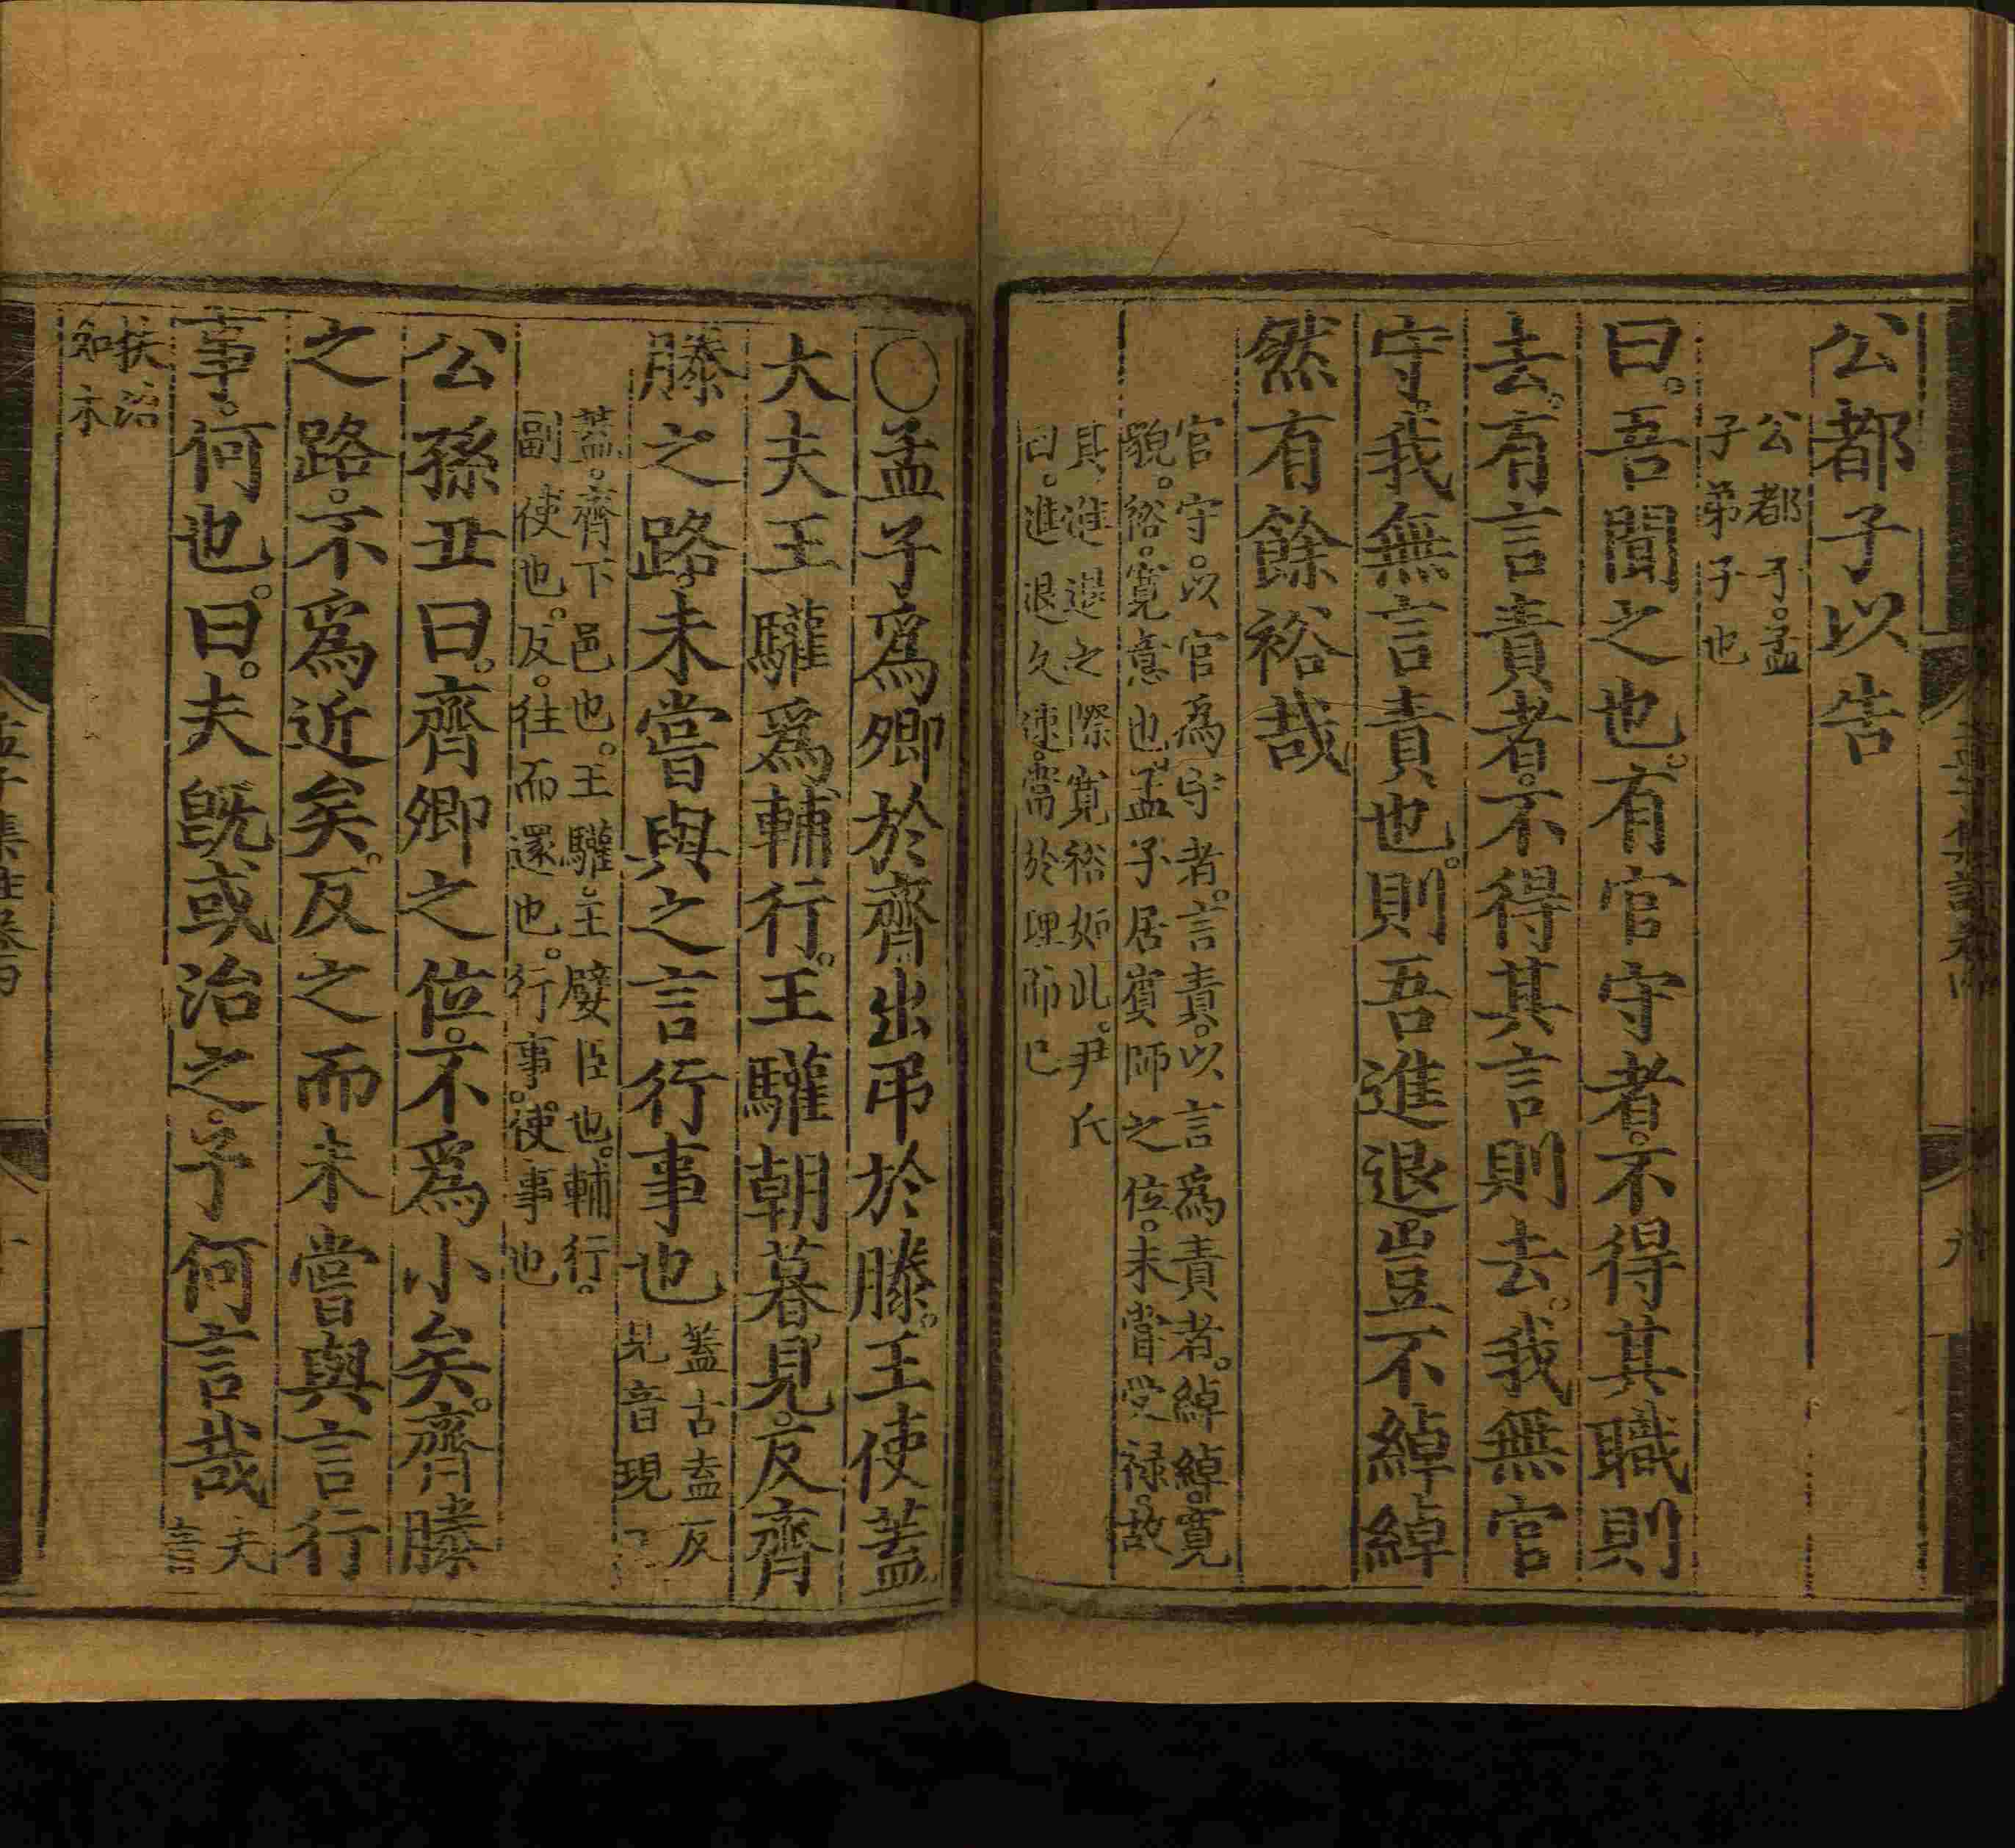 公都子以告
公都子。孟
子弟子也
曰。吾聞之也。有官守者。不得其職則
去。有言責者。不得其言則去。我無官
守。我無言責也。則吾進退豈不綽綽
然有餘裕哉
官守。以官爲守者。言責。以言爲責者。綽綽。寬
貌。裕。寬意也。孟子居賓師之位。未嘗受祿。故
其進退之際寬裕如此。尹氏
曰。進退久速。當於理而已
〇孟子爲卿於齊出弔於滕。王使蓋
大夫王驩爲輔行。王驩朝暮見。反齊
滕之路。未嘗與之言行事也
蓋古盍反
見音現
蓋。齊下邑也。王驩。王嬖臣也。輔行。
副使也。反。往而還也。行事。使事也
公孫丑曰。齊卿之位。不爲小矣。齊滕
之路。不爲近矣。反之而未嘗與言行
事。何也。曰。夫既或治之。予何言哉
夫
音
扶治
如字
孟子集註卷四